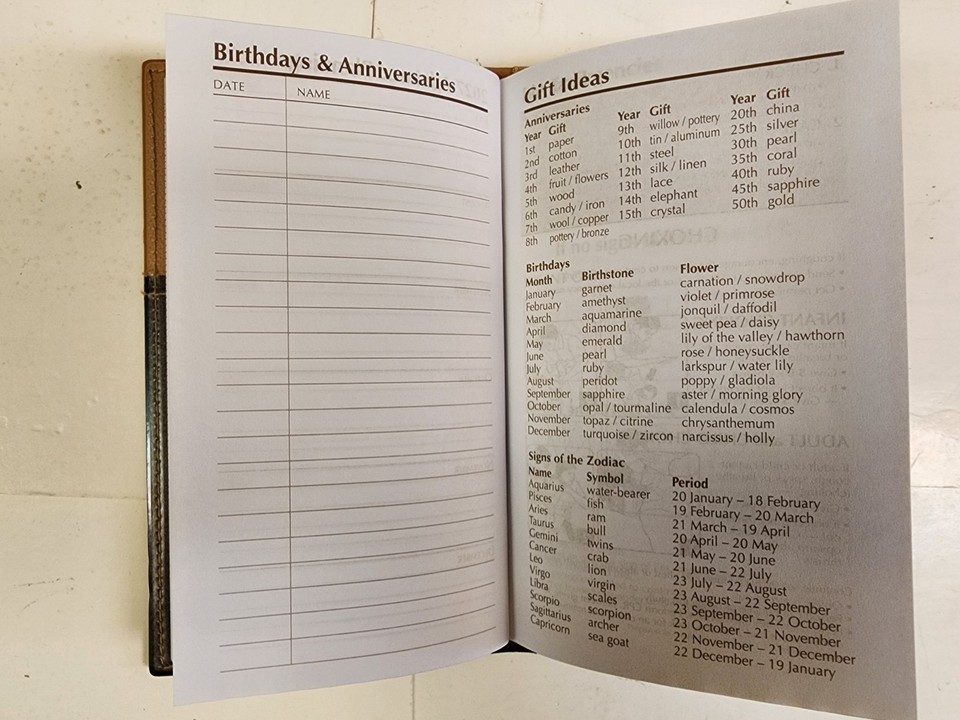 Birthdays & Anniversaries
DATE NAME
Gift Ideas
Anniversaries
Year Gift Year Gift Year Gift
1st paper 9th willow / pottery 20th china
2nd cotton 10th tin / aluminum 25th silver
3rd leather 11th steel 30th pearl
4th fruit / flowers 12th silk / linen 35th coral
5th wood 13th lace 40th ruby
6th candy / iron 14th elephant 45th sapphire
7th wool / copper 15th crystal 50th gold
8th pottery / bronze
Birthdays
Month Birthstone Flower
January garnet carnation / snowdrop
February amethyst violet / primrose
March aquamarine jonquil / daffodil
April diamond sweet pea / daisy
May emerald lily of the valley / hawthorn
June pearl rose / honeysuckle
July ruby larkspur / water lily
August peridot poppy / gladiola
September sapphire aster / morning glory
October opal / tourmaline calendula / cosmos
November topaz / citrine chrysanthemum
December turquoise / zircon narcissus / holly
Signs of the Zodiac
Name Symbol Period
Aquarius water-bearer 20 January – 18 February
Pisces fish 19 February – 20 March
Aries ram 21 March – 19 April
Taurus bull 20 April – 20 May
Gemini twins 21 May – 20 June
Cancer crab 21 June – 22 July
Leo lion 23 July – 22 August
Virgo virgin 23 August – 22 September
Libra scales 23 September – 22 October
Scorpio scorpion 23 October – 21 November
Sagittarius archer 22 November – 21 December
Capricorn sea goat 22 December – 19 January